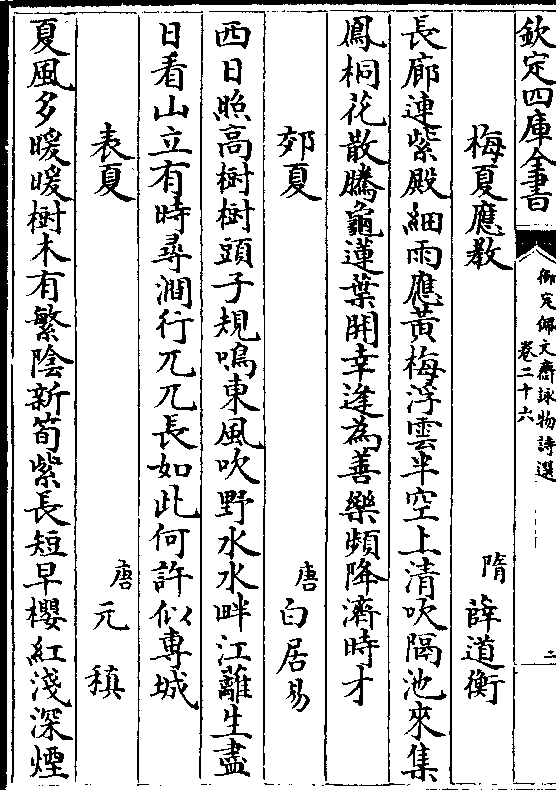 欽定四庫全書
御定佩文齋詠物詩選
卷二十六
二
梅夏應教 隋 薛道衡
長廊連紫殿細雨應黃梅浮雲半空上清吹隔池來集
鳳桐花散騰龜蓮葉開幸逢為善樂頻降濟時才
郊夏 唐 白居易
西日照高樹樹頭子規鳴東風吹野水水畔江蘺生盡
日看山立有時尋澗行兀兀長如此何許似專城
表夏 唐 元稹
夏風多暖暖樹木有繁陰新筍紫長短早櫻紅淺深煙